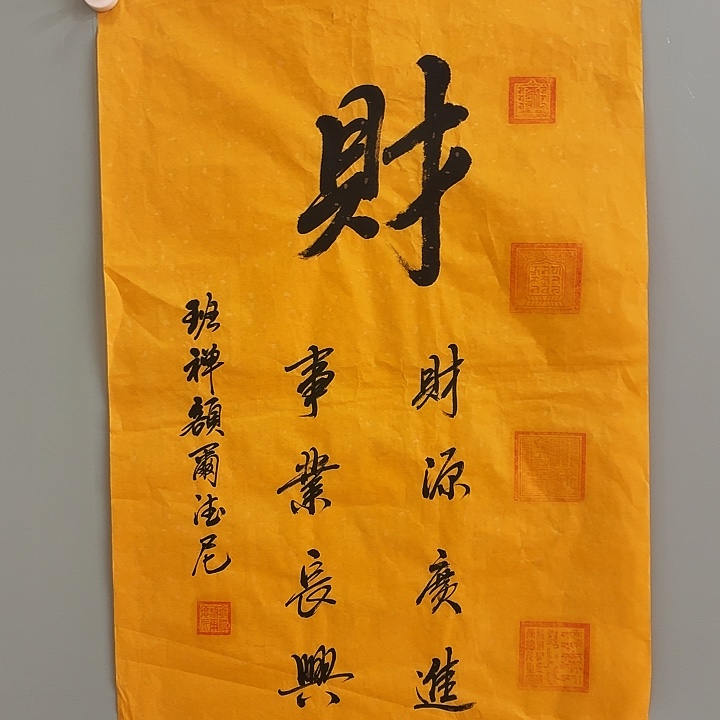 財
財源廣進
事業長興
班禅額爾德尼